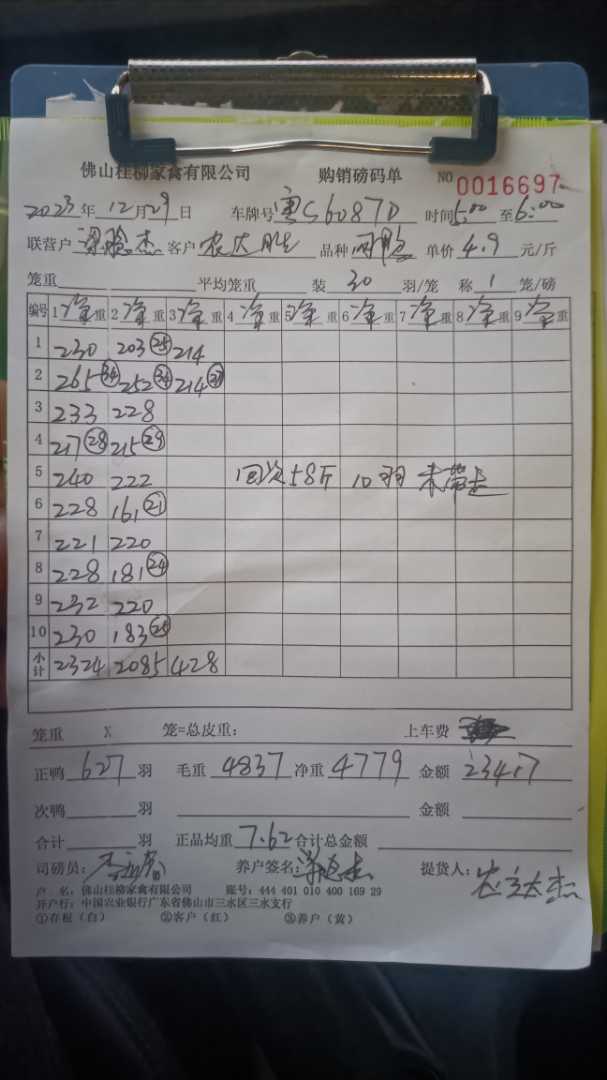 佛山桂柳家禽有限公司 购销磅码单 NO 0016697
2023年12月29日 车牌号 粤S6087D 时间5:00至6:00
联营户 梁 杰 客户 农大胜 品种 单价 4.9 元/斤
笼重 平均笼重 装 30 羽/笼 称 1 笼/磅
编号 1净重 2净重 3净重 4净重 5净重 6净重 7净重 8净重 9净重
1 230 203 25 214
2 265 34 252 34 214 27
3 233 228
4 217 28 215 29
5 240 222 回 58斤 10羽 未带走
6 228 161 21
7 221 220
8 228 181 24
9 232 220
10 230 183 25
小计 2324 2085 428
笼重 X 笼=总皮重: 上车费
正鸭 627 羽 毛重 4837 净重 4779 金额 23417
次鸭 羽 金额
合计 羽 正品均重 7.62 合计总金额
司磅员: 养户签名: 提货人:
户 名: 佛山桂柳家禽有限公司 账号: 444 401 010 400 169 29
开户行: 中国农业银行广东省佛山市三水区三水支行
①存根(白) ②客户(红) ③养户(黄)